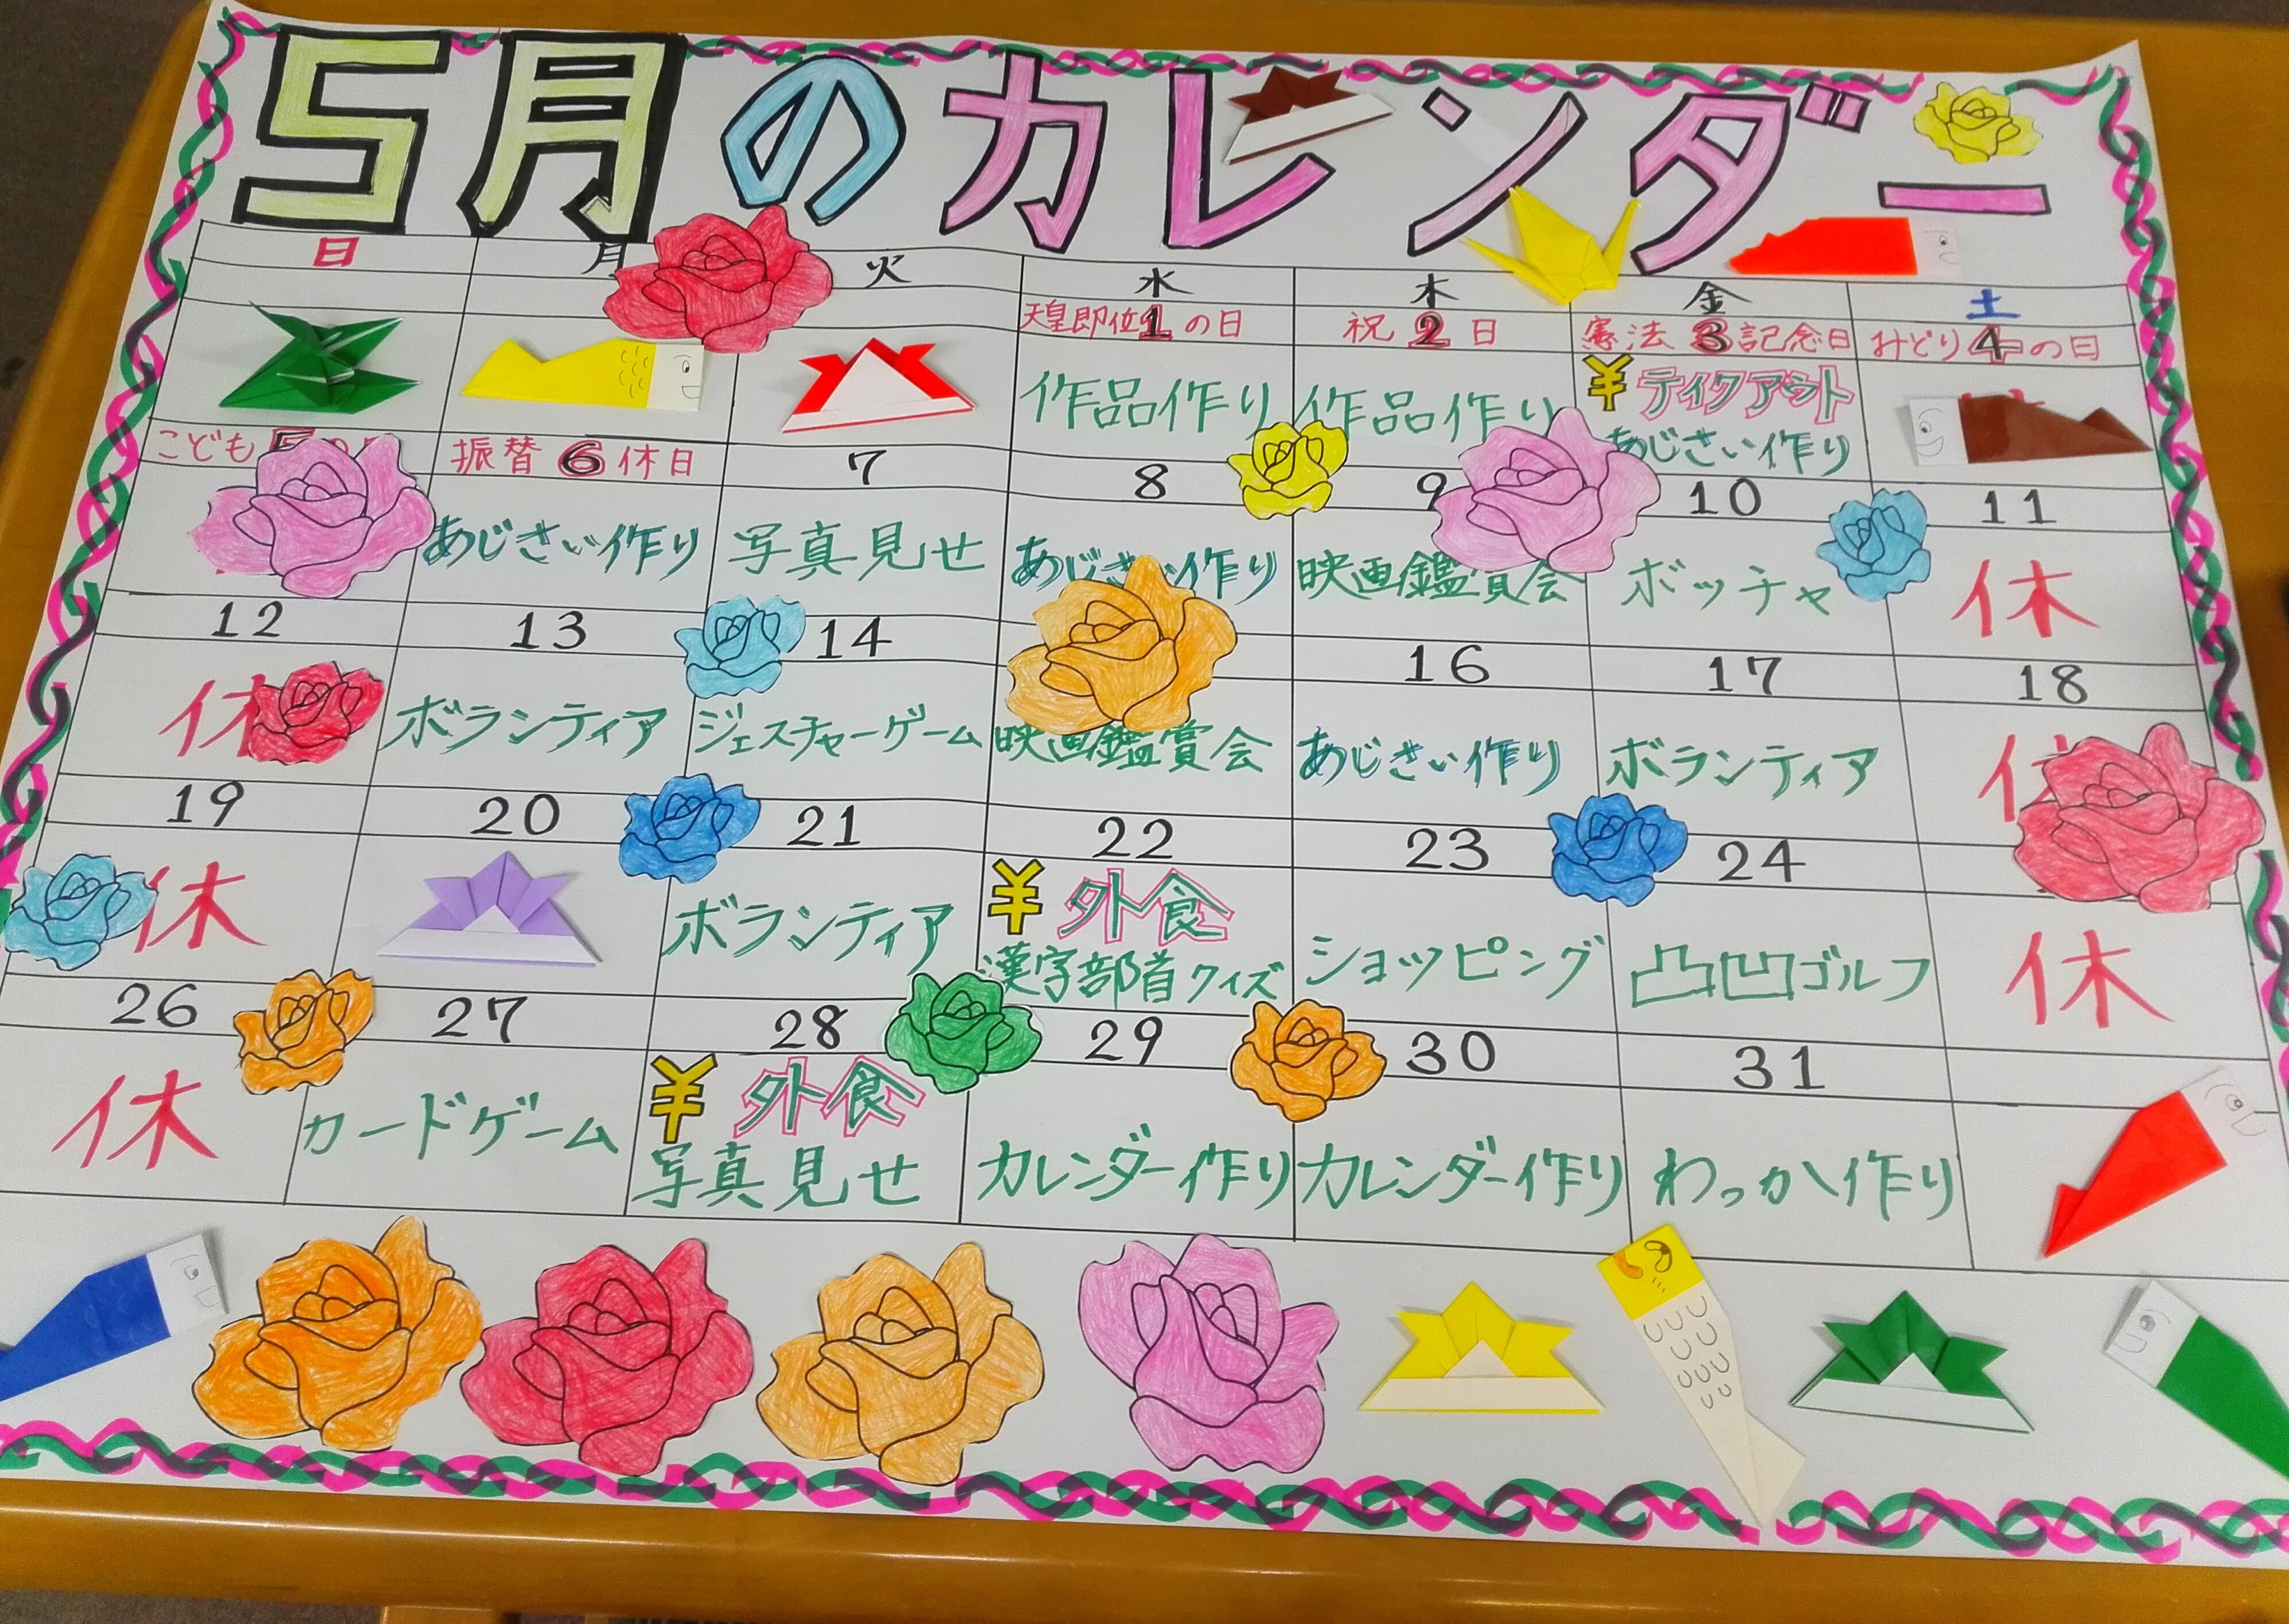 5月のカレンダー
日 月 火 水 木 金 土
天皇即位1の日 祝2日 憲法3記念日 みどり4の日
¥ テイクアウト
作品作り 作品作り あじさい作り
こども 振替6休日 7 8 9 10 11
あじさい作り 写真見せ あじさい作り 映画鑑賞会 ボッチャ 休
12 13 14 16 17 18
休 ボランティア ジェスチャーゲーム 映画鑑賞会 あじさい作り ボランティア 休
19 20 21 22 23 24
¥ 外食
休 ボランティア 漢字部首クイズ ショッピング 凸凹ゴルフ 休
26 27 28 29 30 31
¥ 外食
休 カードゲーム 写真見せ カレンダー作り カレンダー作り わっか作り